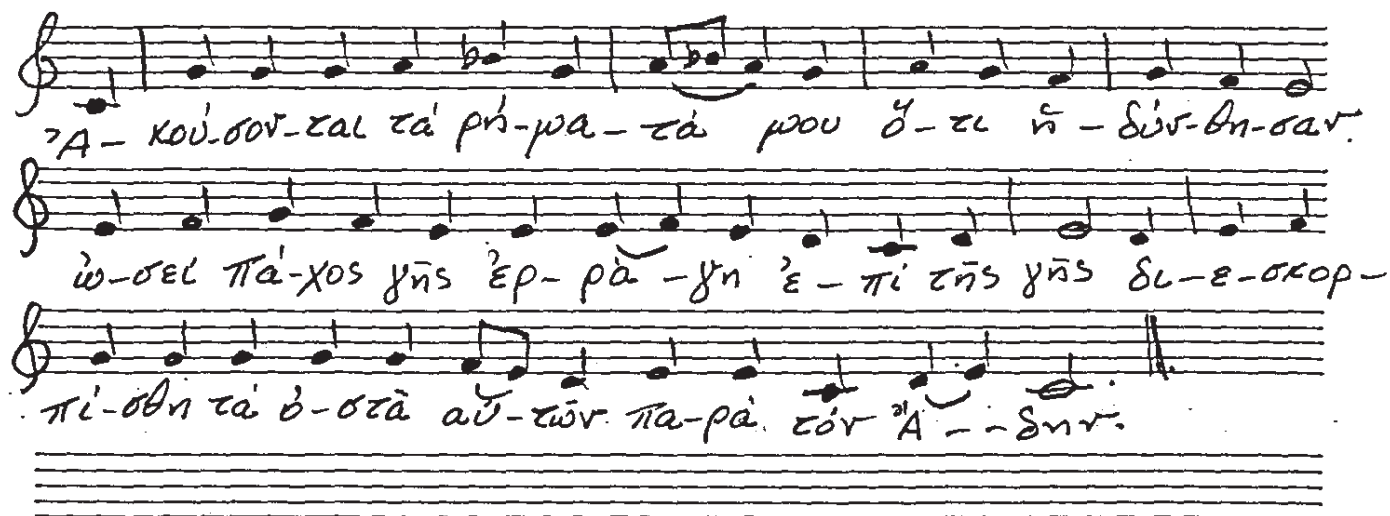 Ἀ- κού-σον-ται τά ρή-μα-τά μου ὅ-τι ἡ-δύν-θη-σαν.
ὡ-σεί πά-χος γῆς ἐρ-ρά-γη ἐ-πί τῆς γῆς δι-ε-σκορ-
πί-σθη τά ὀ-στᾶ αὐ-τῶν πα-ρά τόν Ἅ--δην.